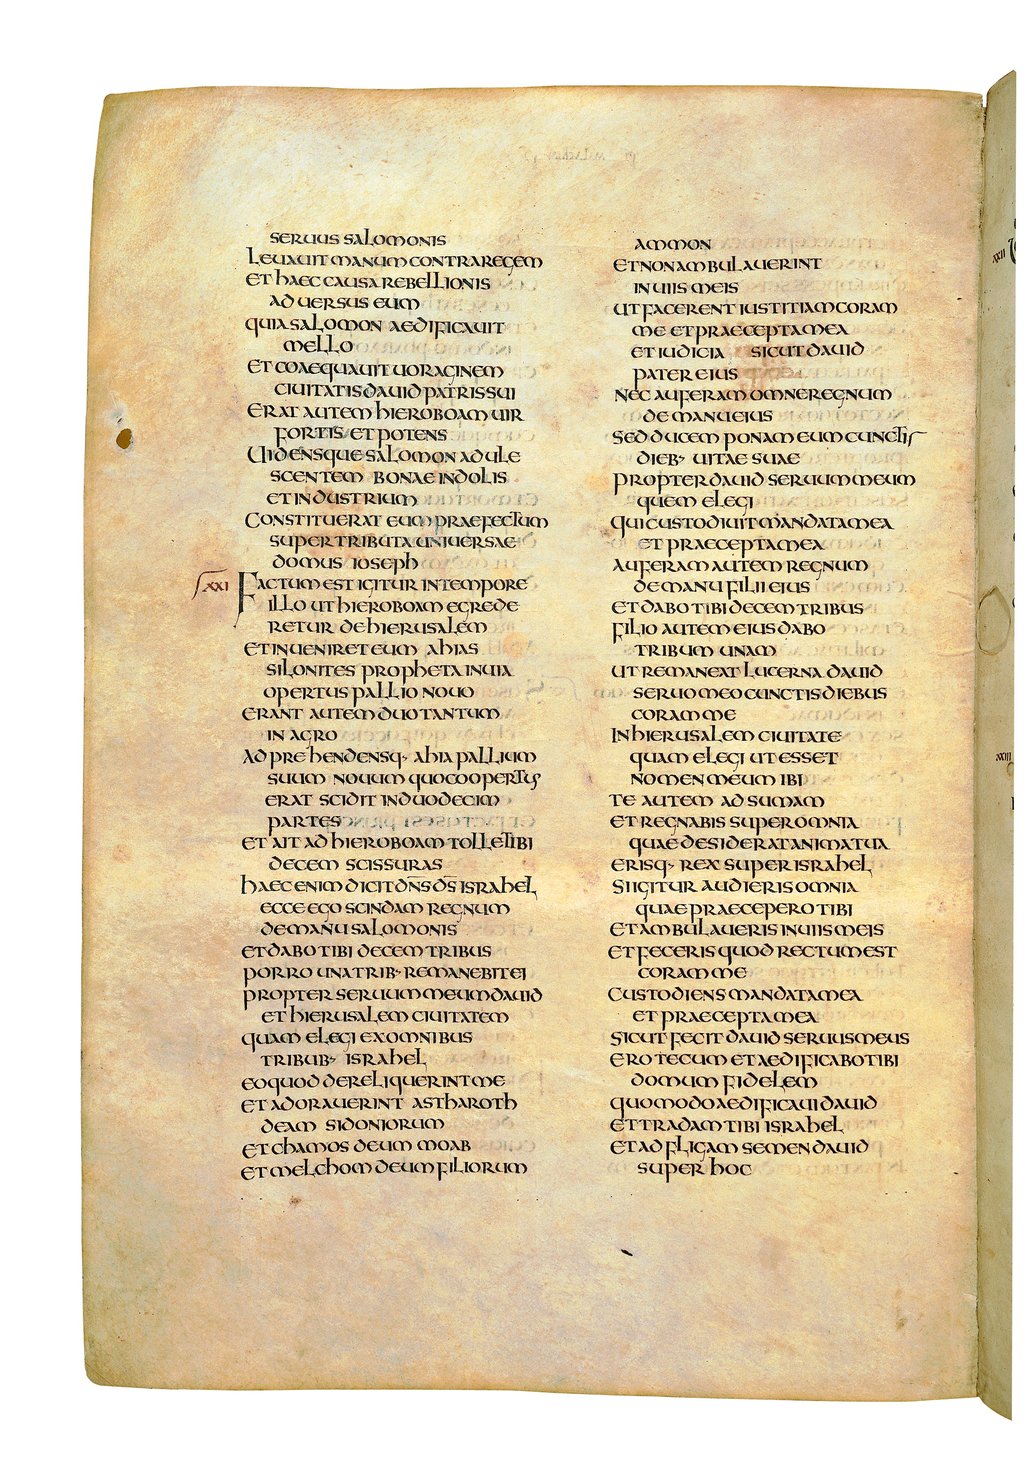 SERUUS SALOMONIS
LEUAUIT MANUM CONTRA REGEM
ET HAEC CAUSA REBELLIONIS
ADUERSUS EUM
QUIA SALOMON AEDIFICAUIT
MELLO
ET COAEQUAUIT UORAGINEM
CIUITATIS DAUID PATRIS SUI
ERAT AUTEM HIEROBOAM UIR
FORTIS ET POTENS
UIDENSQUE SALOMON ADULE
SCENTEM BONAE INDOLIS
ET INDUSTRIUM
CONSTITUERAT EUM PRAEFECTUM
SUPER TRIBUTA UNIUERSAE
DOMUS IOSEPH
XXI FACTUM EST IGITUR IN TEMPORE
ILLO UT HIEROBOAM EGREDE
RETUR DE HIERUSALEM
ET INUENIRET EUM AHIAS
SILONITES PROPHETA IN UIA
OPERTUS PALLIO NOUO
ERANT AUTEM DUO TANTUM
IN AGRO
ADPREHENDENSQ· AHIA PALLIUM
SUUM NOUUM QUO COOPERTUS
ERAT SCIDIT IN DUODECIM
PARTES
ET AIT AD HIEROBOAM TOLLE TIBI
DECEM SCISSURAS
HAEC ENIM DICIT DN̅S D̅S ISRAHEL
ECCE EGO SCINDAM REGNUM
DE MANU SALOMONIS
ET DABO TIBI DECEM TRIBUS
PORRO UNA TRIB· REMANEBIT EI
PROPTER SERUUM MEUM DAUID
ET HIERUSALEM CIUITATEM
QUAM ELEGI EX OMNIBUS
TRIBUB· ISRAHEL
EO QUOD DERELIQUERINT ME
ET ADORAUERINT ASTHAROTH
DEAM SIDONIORUM
ET CHAMOS DEUM MOAB
ET MELCHOM DEUM FILIORUM
AMMON
ET NON AMBULAUERINT
IN UIIS MEIS
UT FACERENT IUSTITIAM CORAM
ME ET PRAECEPTA MEA
ET IUDICIA SICUT DAUID
PATER EIUS
NEC AUFERAM OMNE REGNUM
DE MANU EIUS
SED DUCEM PONAM EUM CUNCTIS
DIEB· UITAE SUAE
PROPTER DAUID SERUUM MEUM
QUEM ELEGI
QUI CUSTODIUIT MANDATA MEA
ET PRAECEPTA MEA
AUFERAM AUTEM REGNUM
DE MANU FILII EIUS
ET DABO TIBI DECEM TRIBUS
FILIO AUTEM EIUS DABO
TRIBUM UNAM
UT REMANEAT LUCERNA DAUID
SERUO MEO CUNCTIS DIEBUS
CORAM ME
IN HIERUSALEM CIUITATE
QUAM ELEGI UT ESSET
NOMEN MEUM IBI
TE AUTEM ADSUMAM
ET REGNABIS SUPER OMNIA
QUAE DESIDERAT ANIMA TUA
ERISQ· REX SUPER ISRAHEL
SI IGITUR AUDIERIS OMNIA
QUAE PRAECEPERO TIBI
ET AMBULAUERIS IN UIIS MEIS
ET FECERIS QUOD RECTUM EST
CORAM ME
CUSTODIENS MANDATA MEA
ET PRAECEPTA MEA
SICUT FECIT DAUID SERUUS MEUS
ERO TECUM ET AEDIFICABO TIBI
DOMUM FIDELEM
QUOMODO AEDIFICAUI DAUID
ET TRADAM TIBI ISRAHEL
ET ADFLIGAM SEMEN DAUID
SUPER HOC
XXII
XXIII